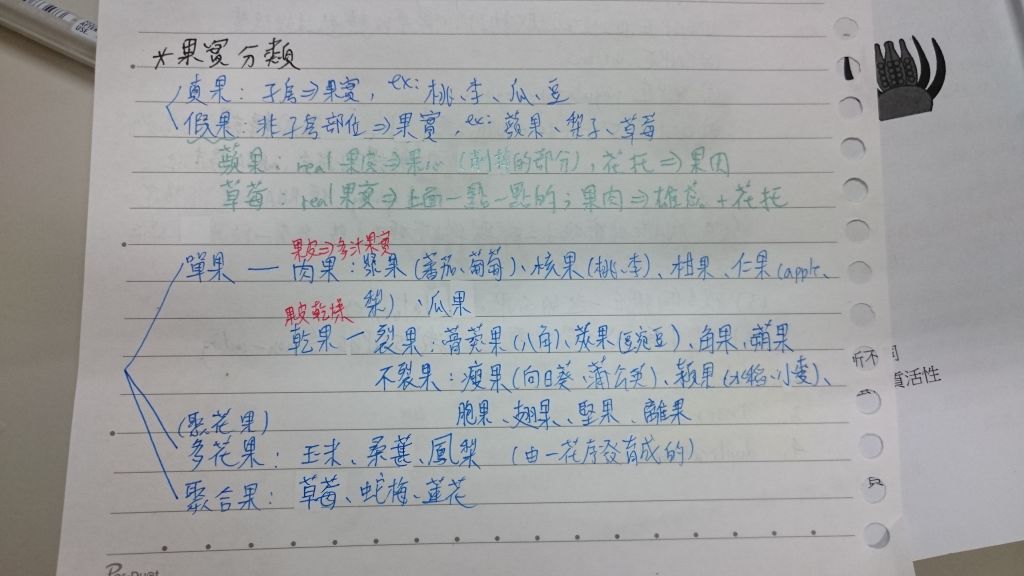 *果實分類
真果：子房⇒果實，ex：桃、李、瓜、豆
假果：非子房部位⇒果實，ex：蘋果、梨子、草莓
蘋果：real果皮⇒果心（剩的部分），花托⇒果肉
草莓：real果實⇒上面一點一點的；果肉⇒雄蕊+花托
果皮⇒多汁果實
單果－肉果：漿果（蕃茄、葡萄）、核果（桃、李）、柑果、仁果（apple、
梨）、瓜果
果皮乾燥
乾果－裂果：蓇葖果（八角）、莢果（豌豆）、角果、蒴果
不裂果：瘦果（向日葵、蒲公英）、穎果（水稻、小麥）、
胞果、翅果、堅果、離果
（聚花果）
多花果：玉米、桑葚、鳳梨（由一花序發育成的）
聚合果：草莓、蛇莓、蓮花
所不同
質活性